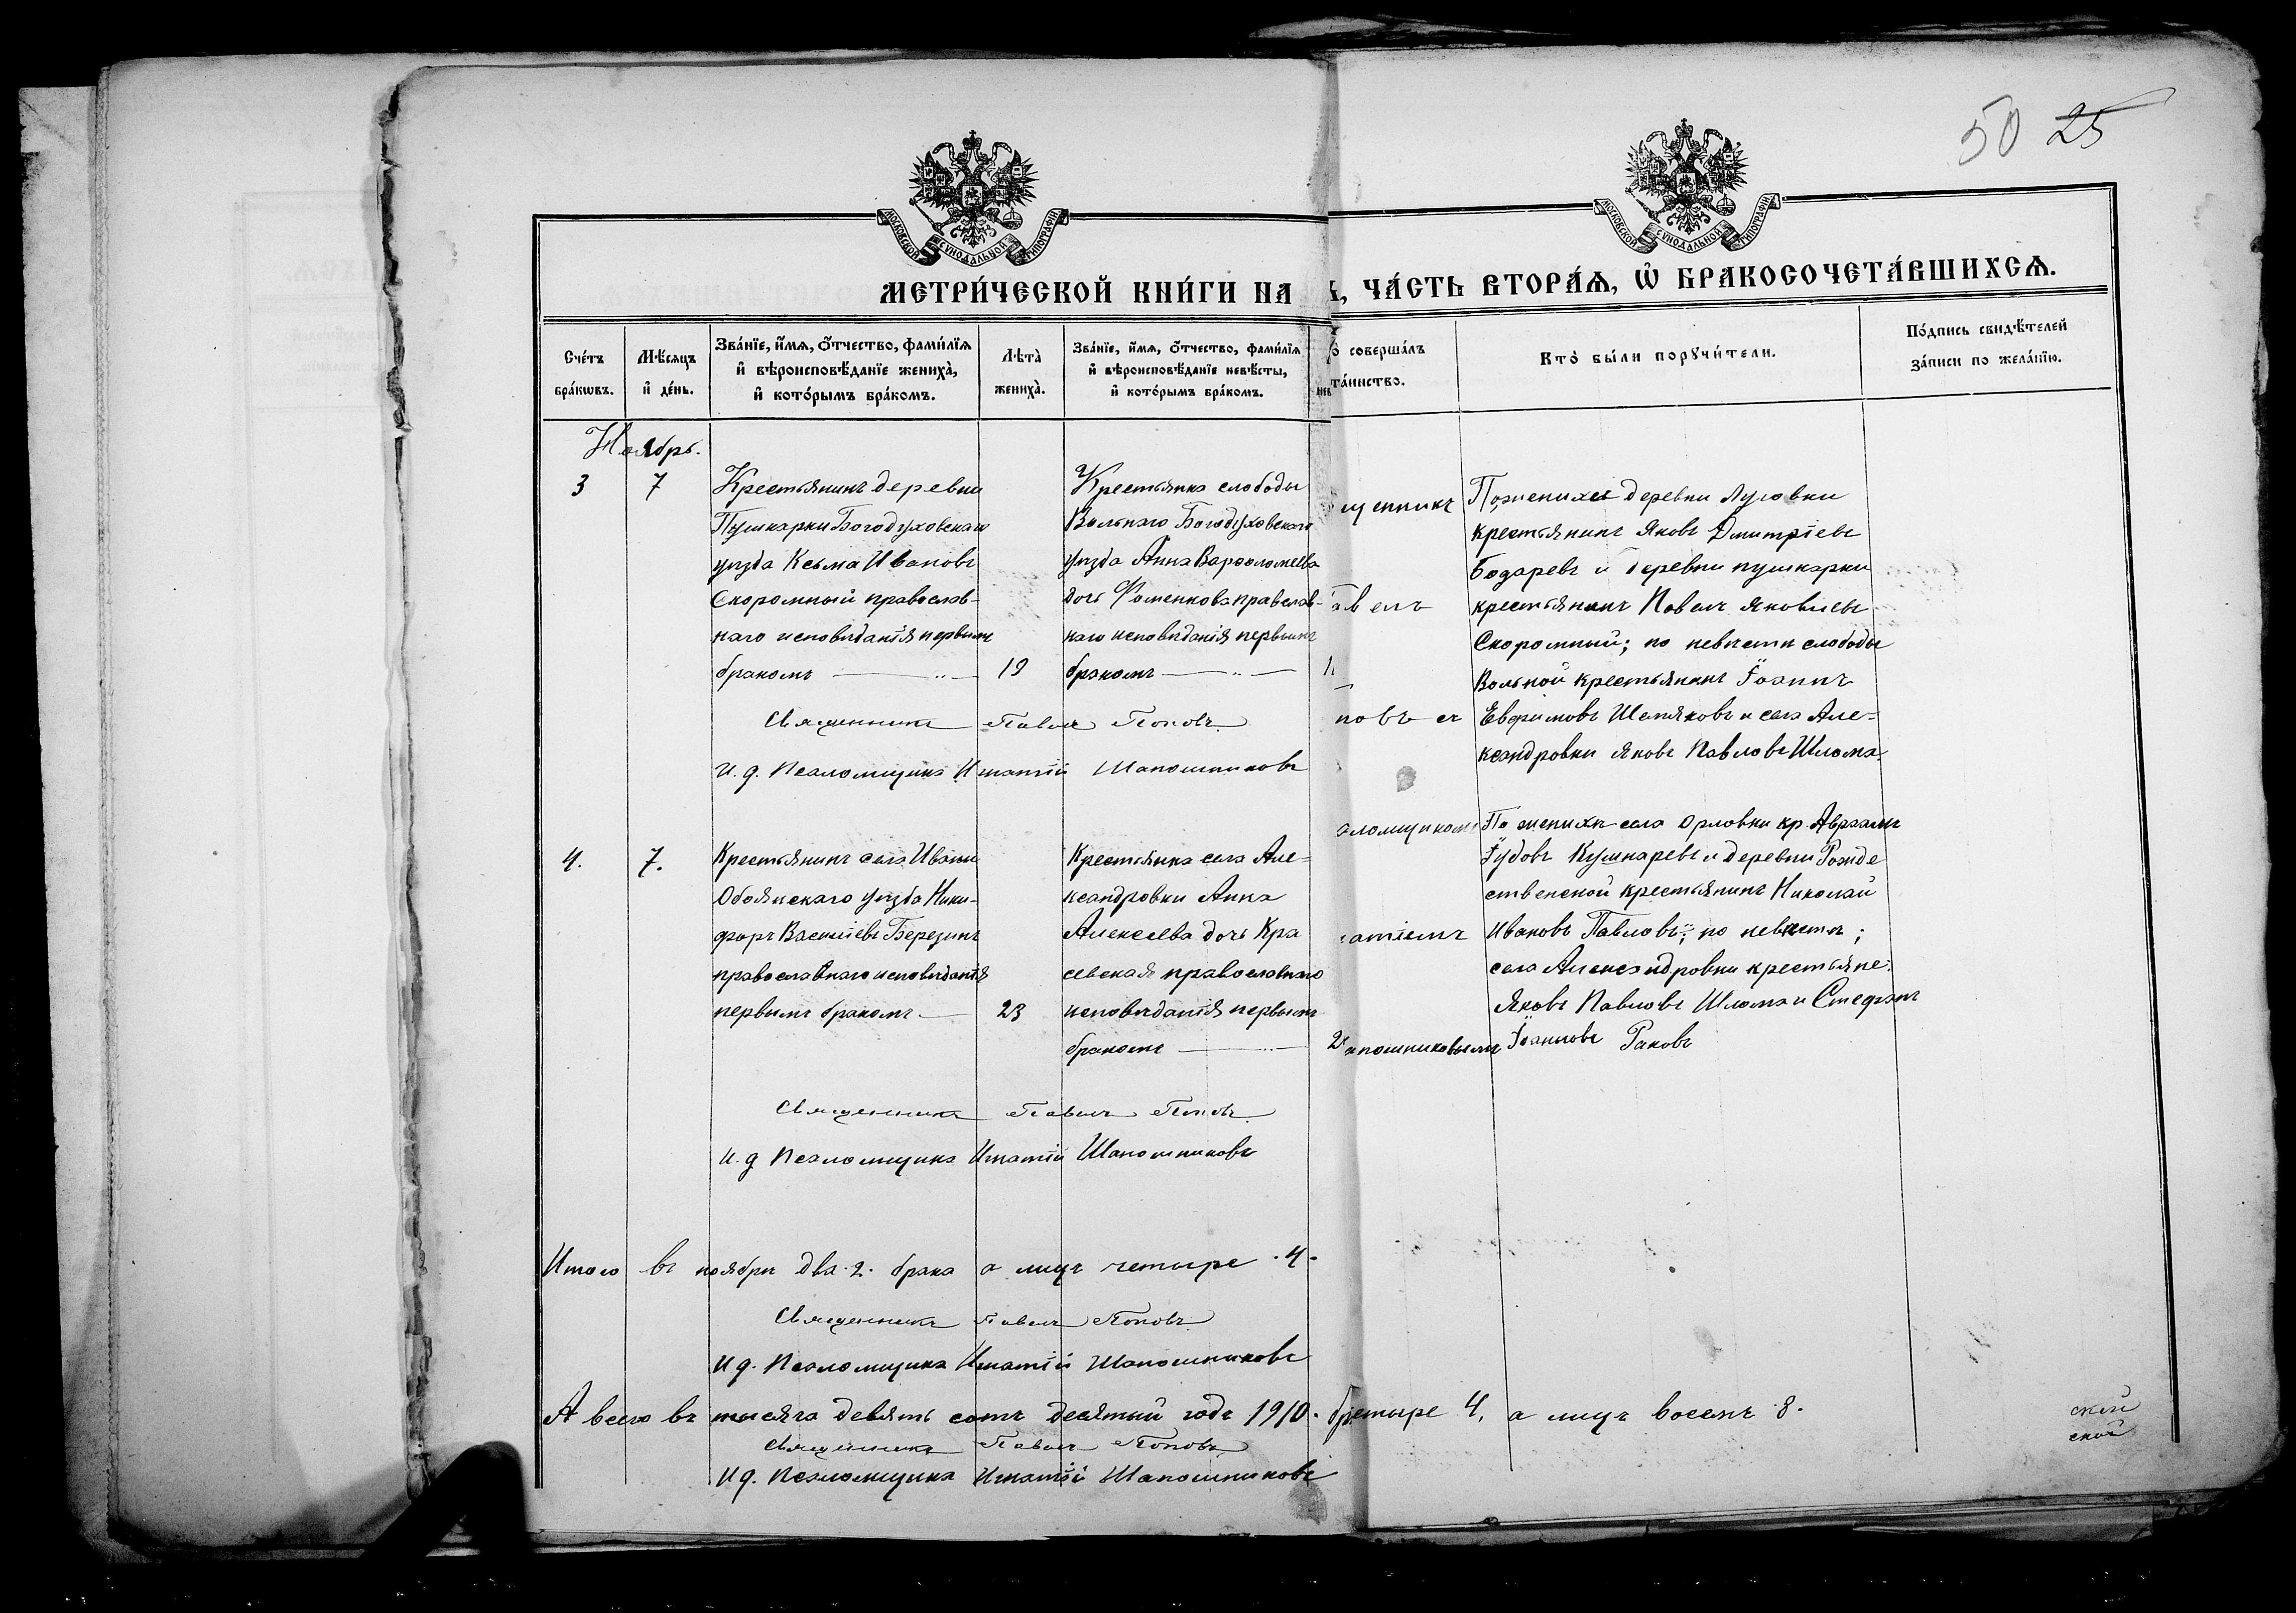 50 25
МОСКОВСКОЙ СѴНОДАЛЬНОЙ ТИПОГРАФІИ
МОСКОВСКОЙ СѴНОДАЛЬНОЙ ТИПОГРАФІИ
МЕТРИ́ЧЕСКОЙ КНИ́ГИ НА
, ЧА́СТЬ ВТОРА́Ѧ, Ѡ҆ БРАКОСОЧЕТА́ВШИХСѦ.
Сче́тъ бра́кѡвъ.
Мѣ́сяцъ и҆ де́нь.
Зва́нїе, и҆́мѧ, о҆́тчество, фами́лїѧ и҆ вѣроисповѣ́данїе жениха̀, и҆ кото́рымъ бра́комъ.
Лѣта̀ жениха̀.
Зва́нїе, и҆́мѧ, о҆́тчество, фами́лїѧ и҆ вѣроисповѣ́данїе невѣ́сты, и҆ кото́рымъ бра́комъ.
нев
о̀ соверша́лъ
та́инство.
Кто̀ бы́ли порꙋчи́тели.
По́дпись свидѣ́телей за́писи по жела́нїю.
Ноябрь.
3
7
Крестьянинъ деревни
Пушкарки Богодуховскаго
уѣзда Косьма Ивановъ
Скоромный православ-
наго исповѣданія первымъ
бракомъ
19
Крестьянка слободы
Вольнаго Богодуховскаго
уѣзда Анна Варѳоломеева
дочь Фоменкова православ-
наго исповѣданія первымъ
бракомъ
щенникъ
Павелъ
повъ съ
По женихѣ деревни Луговки
крестьянинъ Яковъ Дмитріевъ
Бодаревъ и деревни пушкарки
крестьянинъ Павелъ Яковлевъ
Скоромный; по невѣстѣ слободы
Вольной крестьянинъ Іоаннъ
Евфимовъ Шепяковъ и села Але-
ксандровки Яковъ Павловъ Шлома.
Священникъ Павелъ Поповъ
И. д. Псаломщика Игнатій Шапошниковъ
4.
7.
Крестьянинъ села Ивани
Обоянскаго уѣзда Ники-
форъ Васильевъ Березинъ
православнаго исповѣданія
первымъ бракомъ
23
Крестьянка села Але-
ксандровки Анна
Алексеева дочь Кра
севская православнаго
исповѣданія первымъ
бракомъ
2
аломщикомъ
натіемъ
апошниковымъ
По женихѣ села Орловки кр. Авраамъ
Іудовъ Кушнаревъ и деревни Рожде
ственской крестьянинъ Николай
Ивановъ Павловъ; по невѣстѣ;
села Александровки крестьяне:
Яковъ Павловъ Шлома и Стефанъ
Іоанновъ Раковъ
Священникъ Павелъ Поповъ
И. д Псаломщика Игнатій Шапошниковъ
Итого въ ноябрѣ два 2. брака а лицъ четыре 4.
Священникъ Павелъ Поповъ
И д. Псаломщика Игнатій Шапошниковъ
А всего въ тысяча девять сотъ десятый годъ 1910. четыре 4, а лицъ восемь 8.
Священникъ Павелъ Поповъ
И д. Псаломщика Игнатій Шапошниковъ
ской
ской